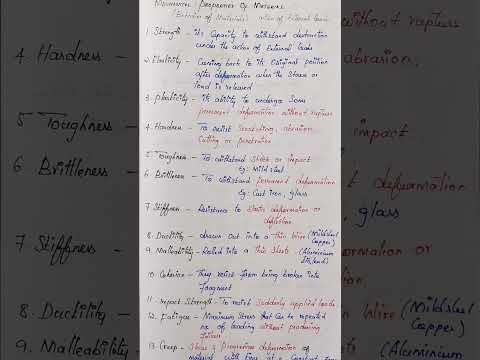 Mechanical Properties Of Material
(Behavior of Materials) action of External loads
1. Strength - Its Capacity to withstand destruction
under the action of External loads
2. Elasticity - Coming back to its Original position
after deformation when the Stress or
load is released
3. Plasticity - its ability to undergo Some
permanent deformation without rupture
4. Hardness - To resist Scratching, abrasion,
Cutting or penetration
5. Toughness - To withstand Shock or impact
Eg: Mild steel
6. Brittleness - To withstand permanent deformation
Eg: Cast iron, glass
7. Stiffness - Resistance to Elastic deformation or
deflection
8. Ductility - drawn out into a thin wire (Mild steel
Copper)
9. Malleability - Rolled into a thin sheets (Aluminium
10. Cohesion - They resist from being broken into
fragment
11. Impact Strength - To resist Suddenly applied loads
12. Fatigue - Maximum Stress that can be repeated
no of loading without producing
failure
13. Creep - Slow & progressive deformation of
material with time at a Constant
without rupture
4 Hardness -
abrasion,
5 Toughness -
impact
6 Brittleness -
t deformation
glass
7 Stiffness -
formation or
8. Ductility -
wire (Mild steel
Copper)
9. Malleability -
(Aluminium